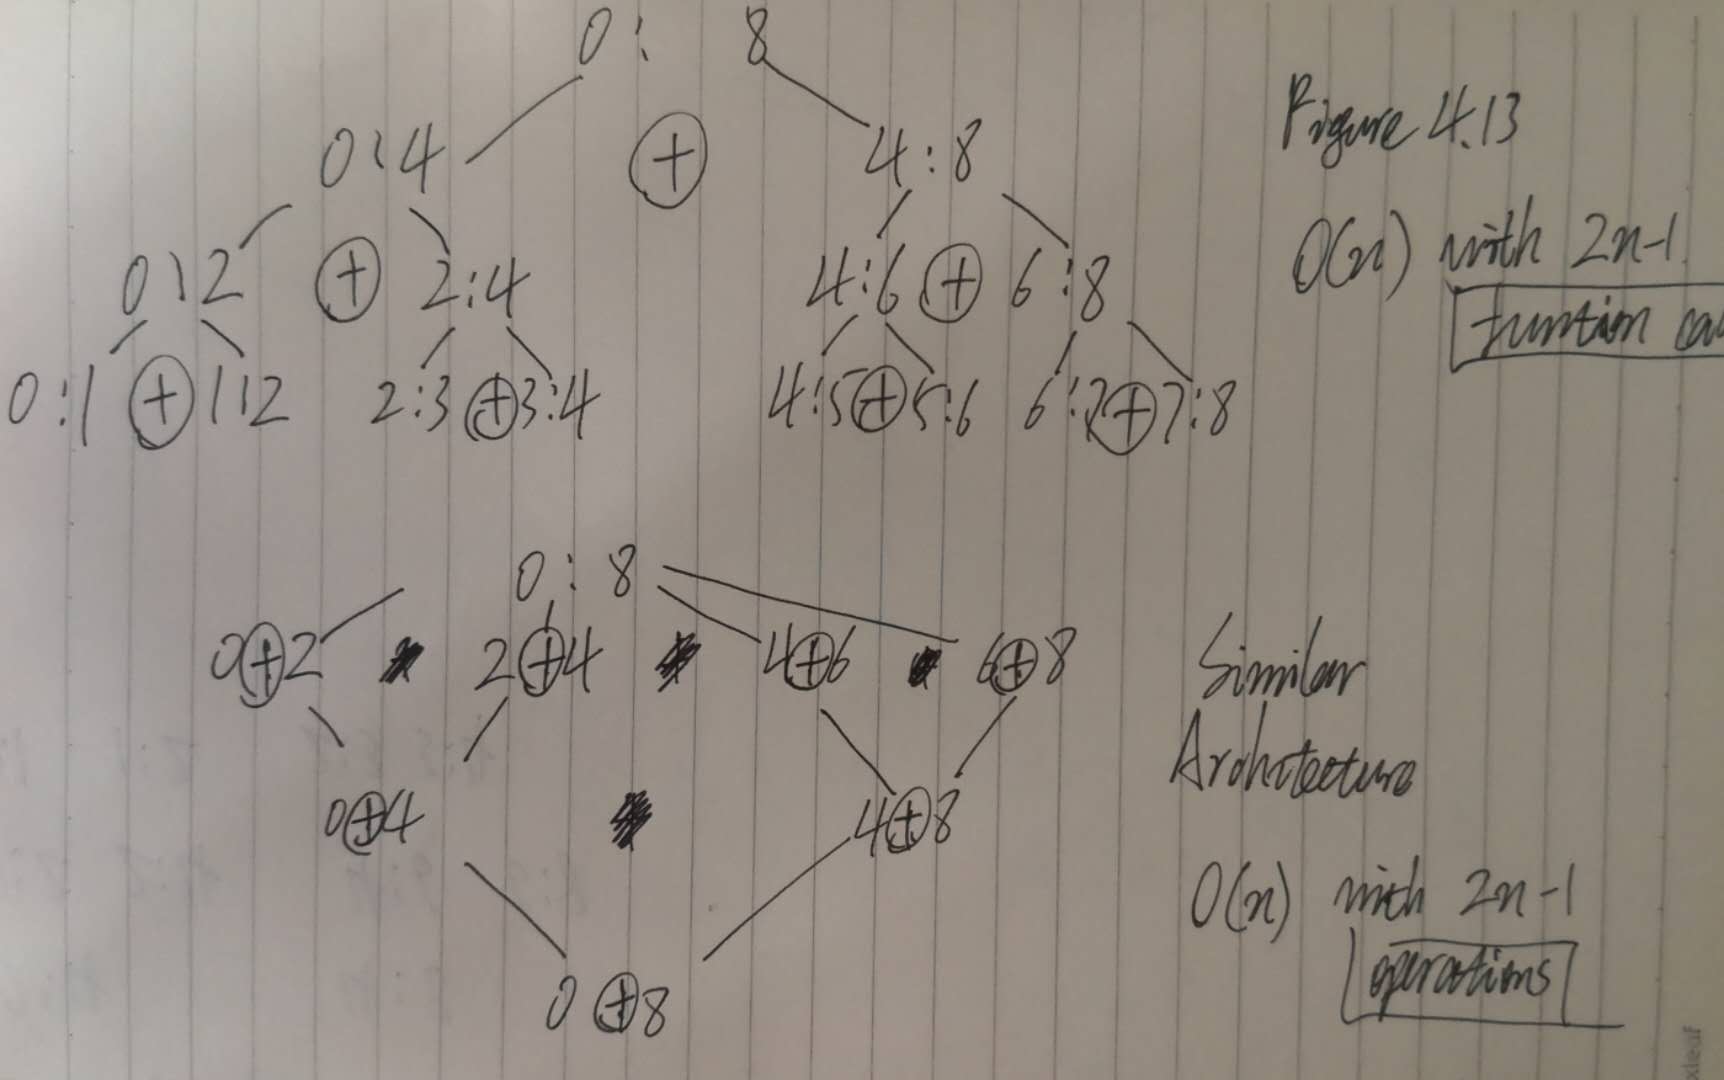 0 : 8
0 : 4 ⊕ 4 : 8
0 : 2 ⊕ 2 : 4 4 : 6 ⊕ 6 : 8
0 : 1 ⊕ 1 : 2 2 : 3 ⊕ 3 : 4 4 : 5 ⊕ 5 : 6 6 : 7 ⊕ 7 : 8
Figure 4.13
O(n) with 2n-1
function ca
0 : 8
0⊕2 2⊕4 4⊕6 6⊕8
0⊕4 4⊕8
0⊕8
Similar
Architecture
O(n) with 2n-1
operations